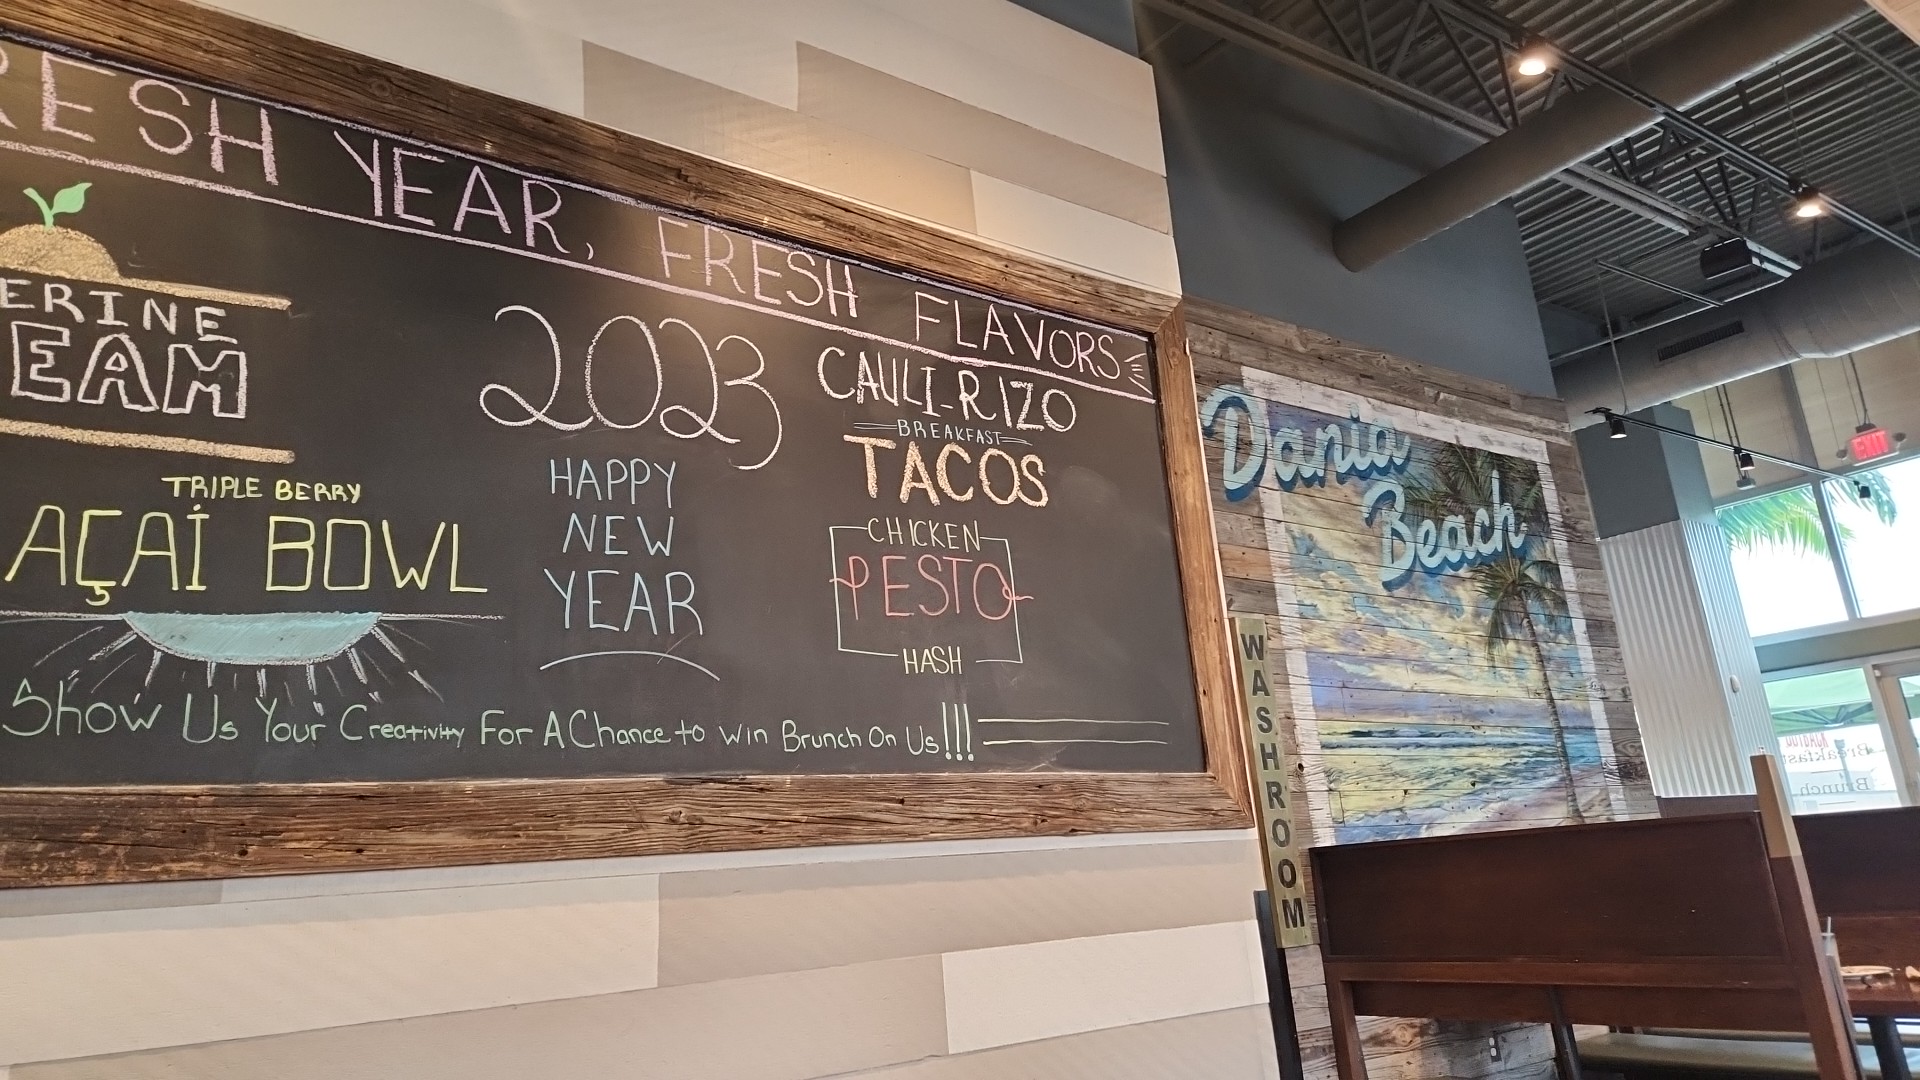 RESH YEAR, FRESH FLAVORS
ERINE
EAM
TRIPLE BERRY
AÇAÍ BOWL
2023
HAPPY
NEW
YEAR
CAULI-RIZO
BREAKFAST
TACOS
CHICKEN
PESTO
HASH
Show Us Your Creativity For A Chance to Win Brunch On Us!!!
Dania
Beach
WASHROOM
EXIT
OUTBACK
Breakfast
Brunch